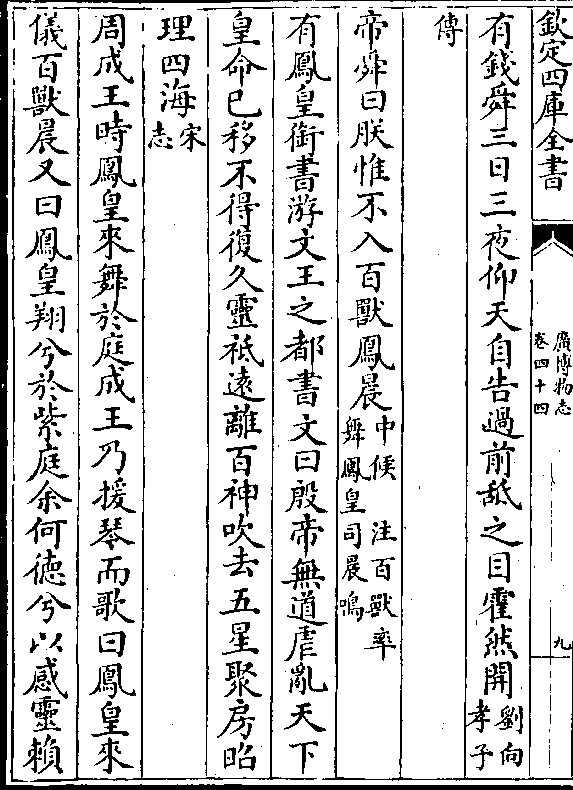 欽定四庫全書
廣博物志
卷四十四
九
有錢舜三日三夜仰天自告過前舐之目霍然開劉向孝子
傳
帝舜曰朕惟不入百獸鳳晨中候 注百獸率舞鳳皇司晨鳴
有鳳皇銜書游文王之都書文曰殷帝無道虐亂天下
皇命已移不得復久靈祗遠離百神吹去五星聚房昭
理四海宋志
周成王時鳳皇來舞於庭成王乃援琴而歌曰鳳皇來
儀百獸晨又曰鳳皇翔兮於紫庭余何徳兮以感靈賴